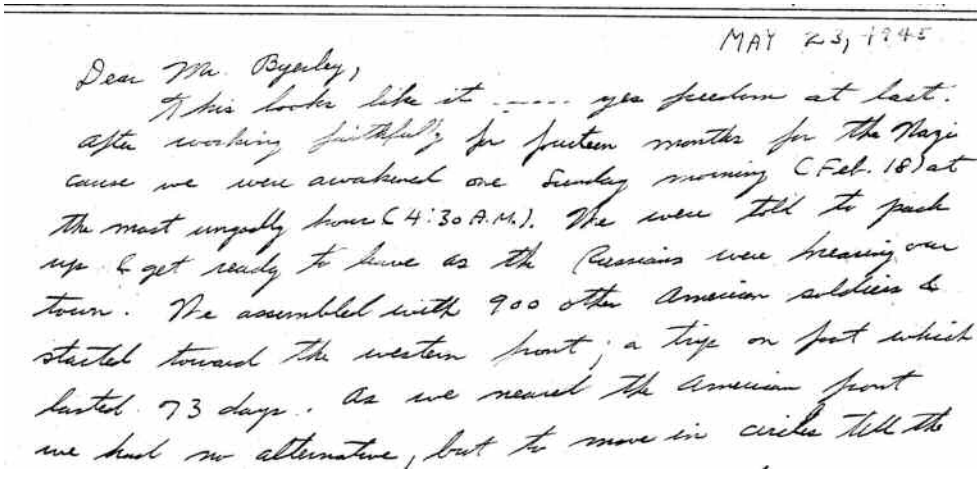 MAY 23, 1945
Dear Mr. Byerley,
This looks like it ----- yes freedom at last.
After working faithfully for fourteen months for the Nazi
cause we were awakened one Sunday morning (Feb. 18) at
the most ungodly hour (4:30 A.M.). We were told to pack
up & get ready to leave as the Russians were nearing our
town. We assembled with 900 other American soldiers &
started toward the western front; a trip on foot which
lasted 73 days. As we neared the American front
we had no alternative, but to move in circles till the